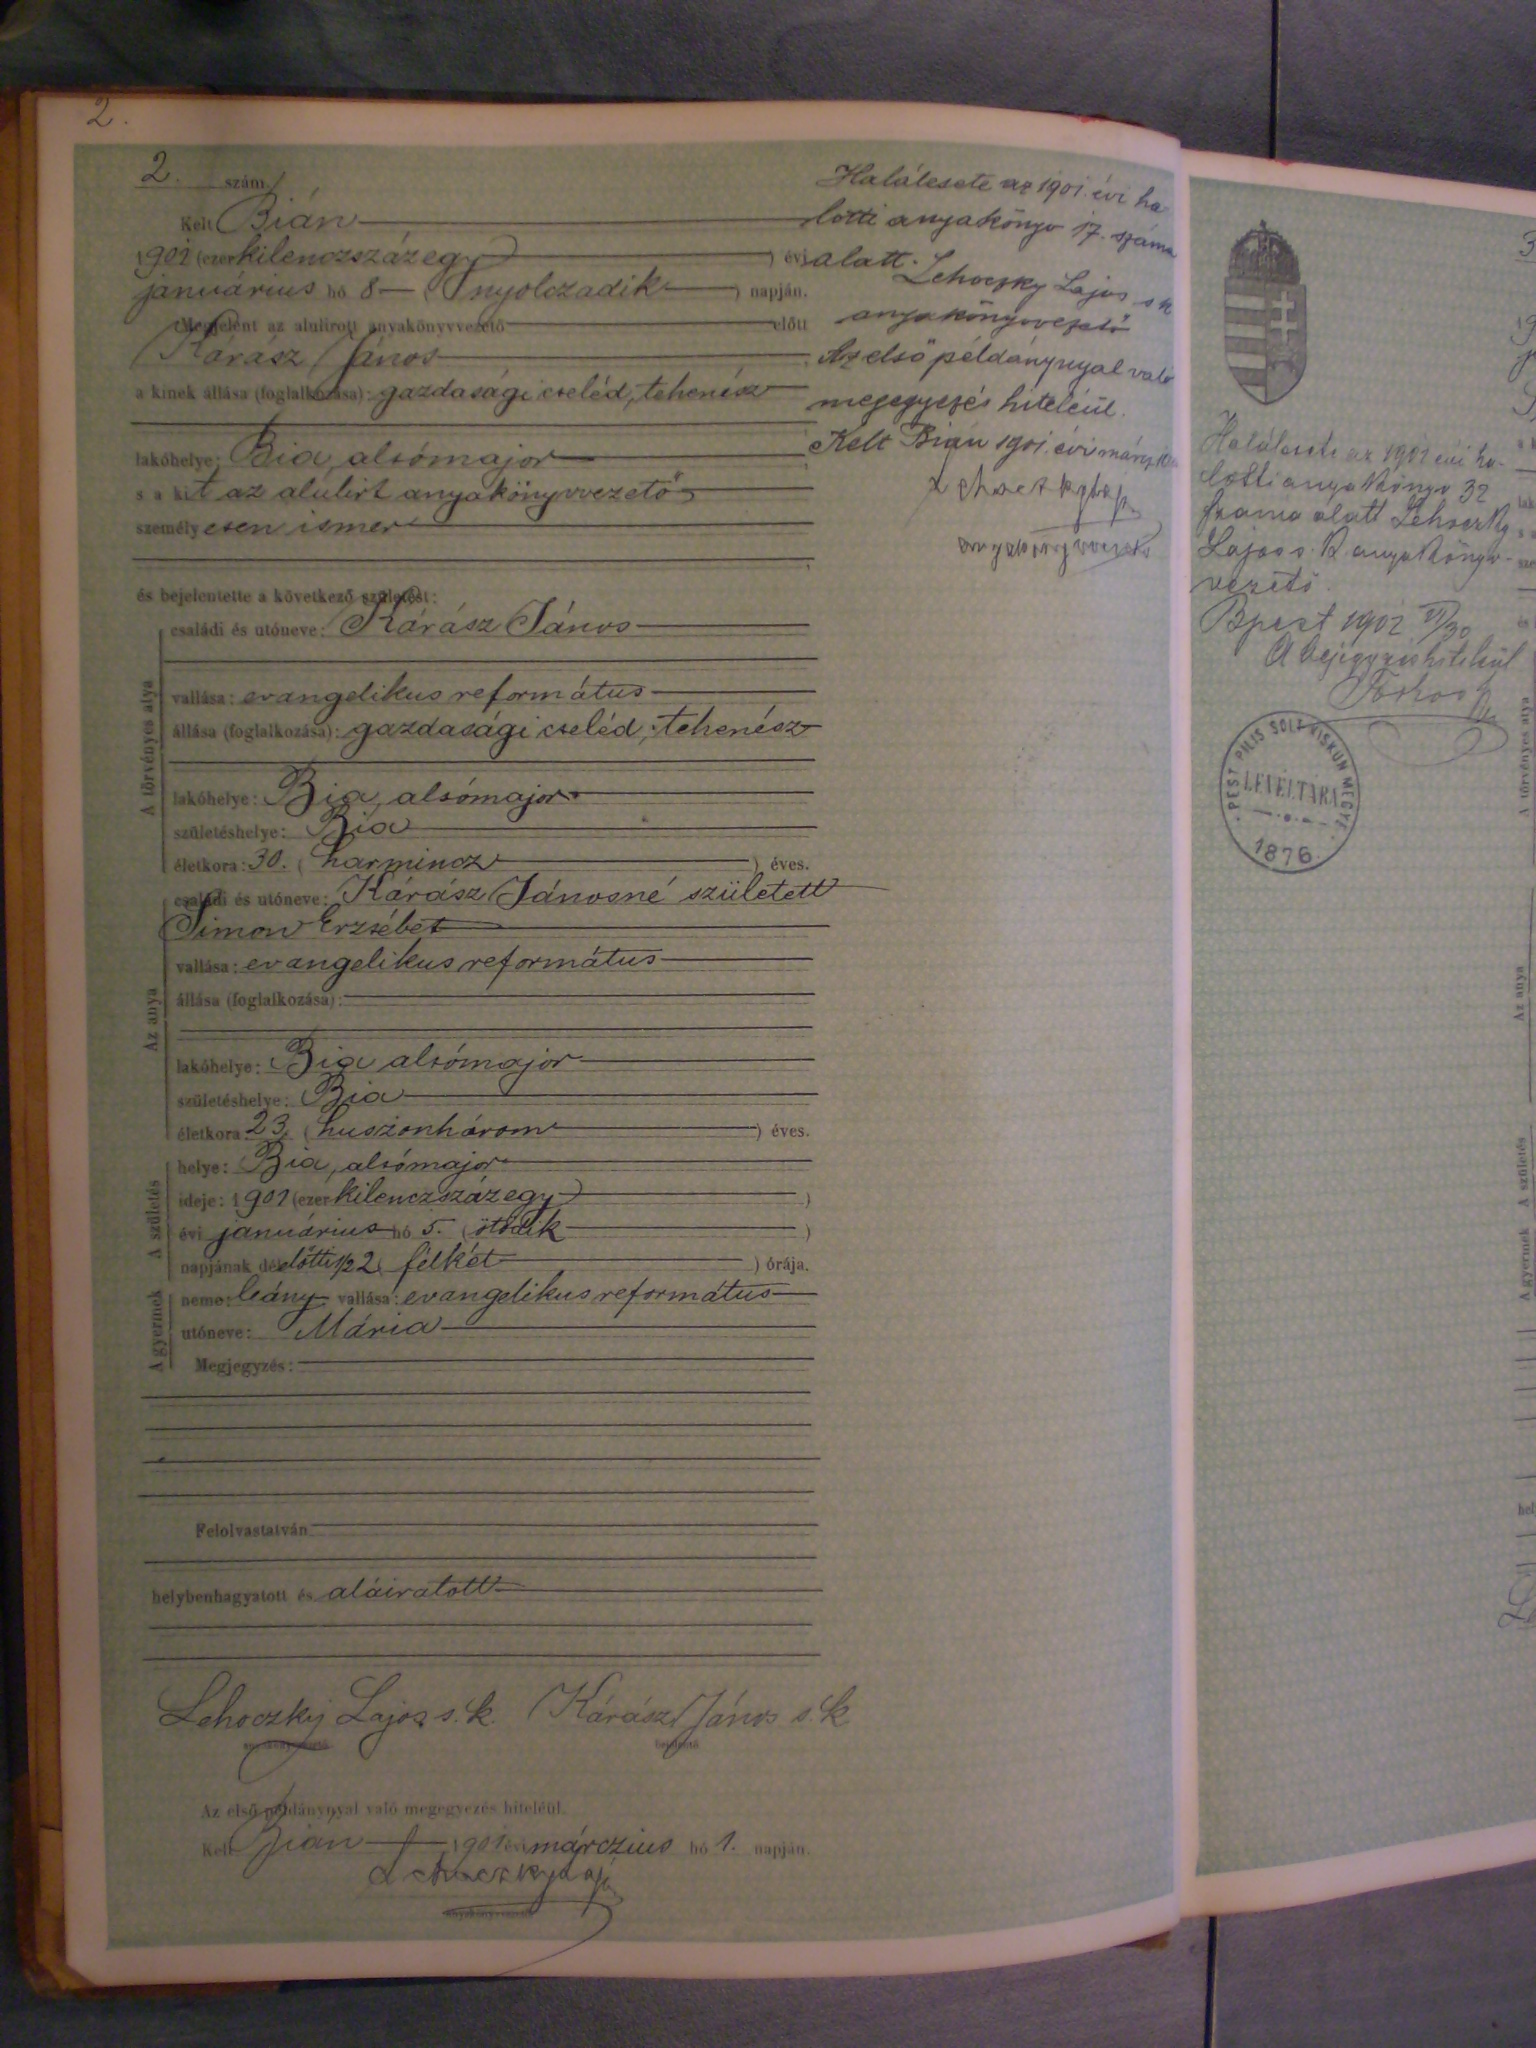 2.
2. szám.
Kelt Bián
1901 (ezer kilenczszázegy) évi
januárius hó 8 — (nyolczadik) napján.
Megjelent az alulirott anyakönyvvezető előtt
Kárász János
a kinek állása (foglalkozása): gazdasági cseléd, tehenész
lakóhelye: Bia, alsómajor
s a kit az alulirt anyakönyvvezető
személyesen ismer
és bejelentette a következő születést:
A törvényes atya
családi és utóneve: Kárász János
vallása: evangelikus református
állása (foglalkozása): gazdasági cseléd, tehenész
lakóhelye: Bia, alsómajor
születéshelye: Bia
életkora: 30. (harmincz) éves.
Az anya
családi és utóneve: Kárász Jánosné született
Simon Erzsébet
vallása: evangelikus református
állása (foglalkozása):
lakóhelye: Bia alsómajor
születéshelye: Bia
életkora: 23. (huszonhárom) éves.
A születés
helye: Bia, alsómajor
ideje: 1901 (ezer kilenczszázegy)
évi januárius hó 5. (ötödik)
napjának délelőtti 1/2 2 (félkét) órája.
A gyermek
neme: leány vallása: evangelikus református
utóneve: Mária
Megjegyzés:
Felolvastatván
helybenhagyatott és aláiratott
Lehoczky Lajos s.k. Kárász János s.k.
anyakönyvvezető bejelentő
Az első példánynyal való megegyezés hiteléül.
Kelt Bián 1901 évi márczius hó 1. napján.
Lehoczky Lajos
anyakönyvvezető
Halálesete az 1901. évi ha
lotti anyakönyv 17. száma
alatt.
Lehoczky Lajos s k
anyakönyvvezető
Az első példánynyal való
megegyezés hiteléül.
Kelt Bián 1901. évi márcz. 10
Lehoczky Lajos
anyakönyvvezető
Halálesete az 1902 évi ha-
lotti anyakönyv 32
száma alatt Lehoczky
Lajos s. k. anyakönyv-
vezető.
Bpest 1902 VI/30
A bejegyzés hiteléül
PEST PILIS SOLT KISKUN MEGYE
LEVÉLTÁRA
1876
3
A törvényes atya
Az anya
A születés
A gyermek